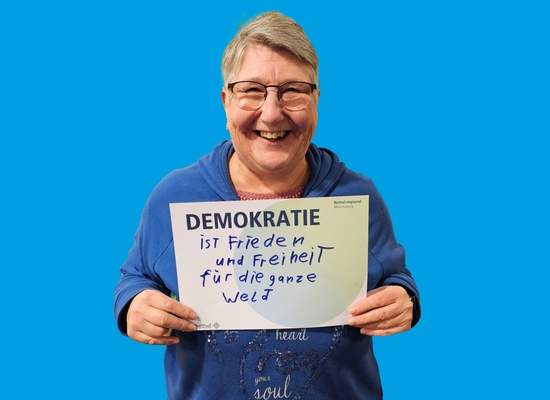 Bethel.regional
DEMOKRATIE
ist Frieden
und Freiheit
für die ganze
Weld
Bethel
heart
your
soul